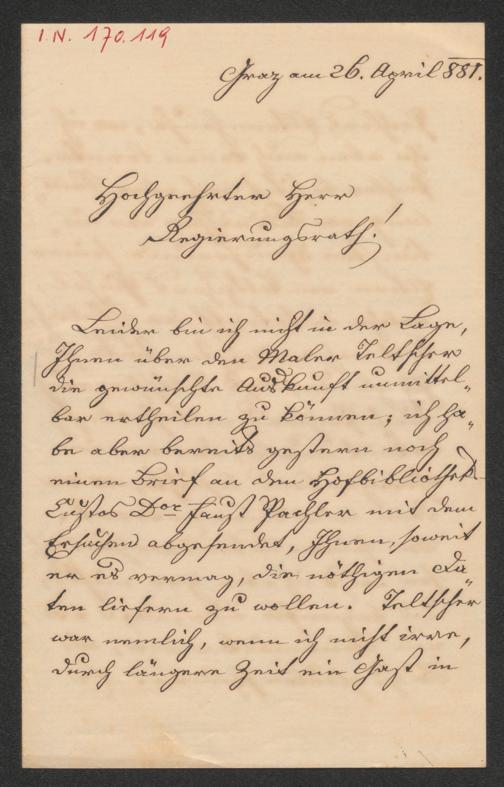 I.N. 170.119
Graz am 26. April 881.
Hochgeehrter Herr
Regierungsrath!
Leider bin ich nicht in der Lage,
Ihnen über den Maler Teltscher
die gewünschte Auskunft unmittel„
bar ertheilen zu können; ich ha„
be aber bereits gestern noch
einen Brief an den Hofbibliothek-
Custos Dor Faust Pachler mit dem
Ersuchen abgesendet, Ihnen, soweit
er es vermag, die nöthigen Da„
ten liefern zu wollen. Teltscher
war nemlich, wenn ich nicht irre,
durch längere Zeit ein Gast in